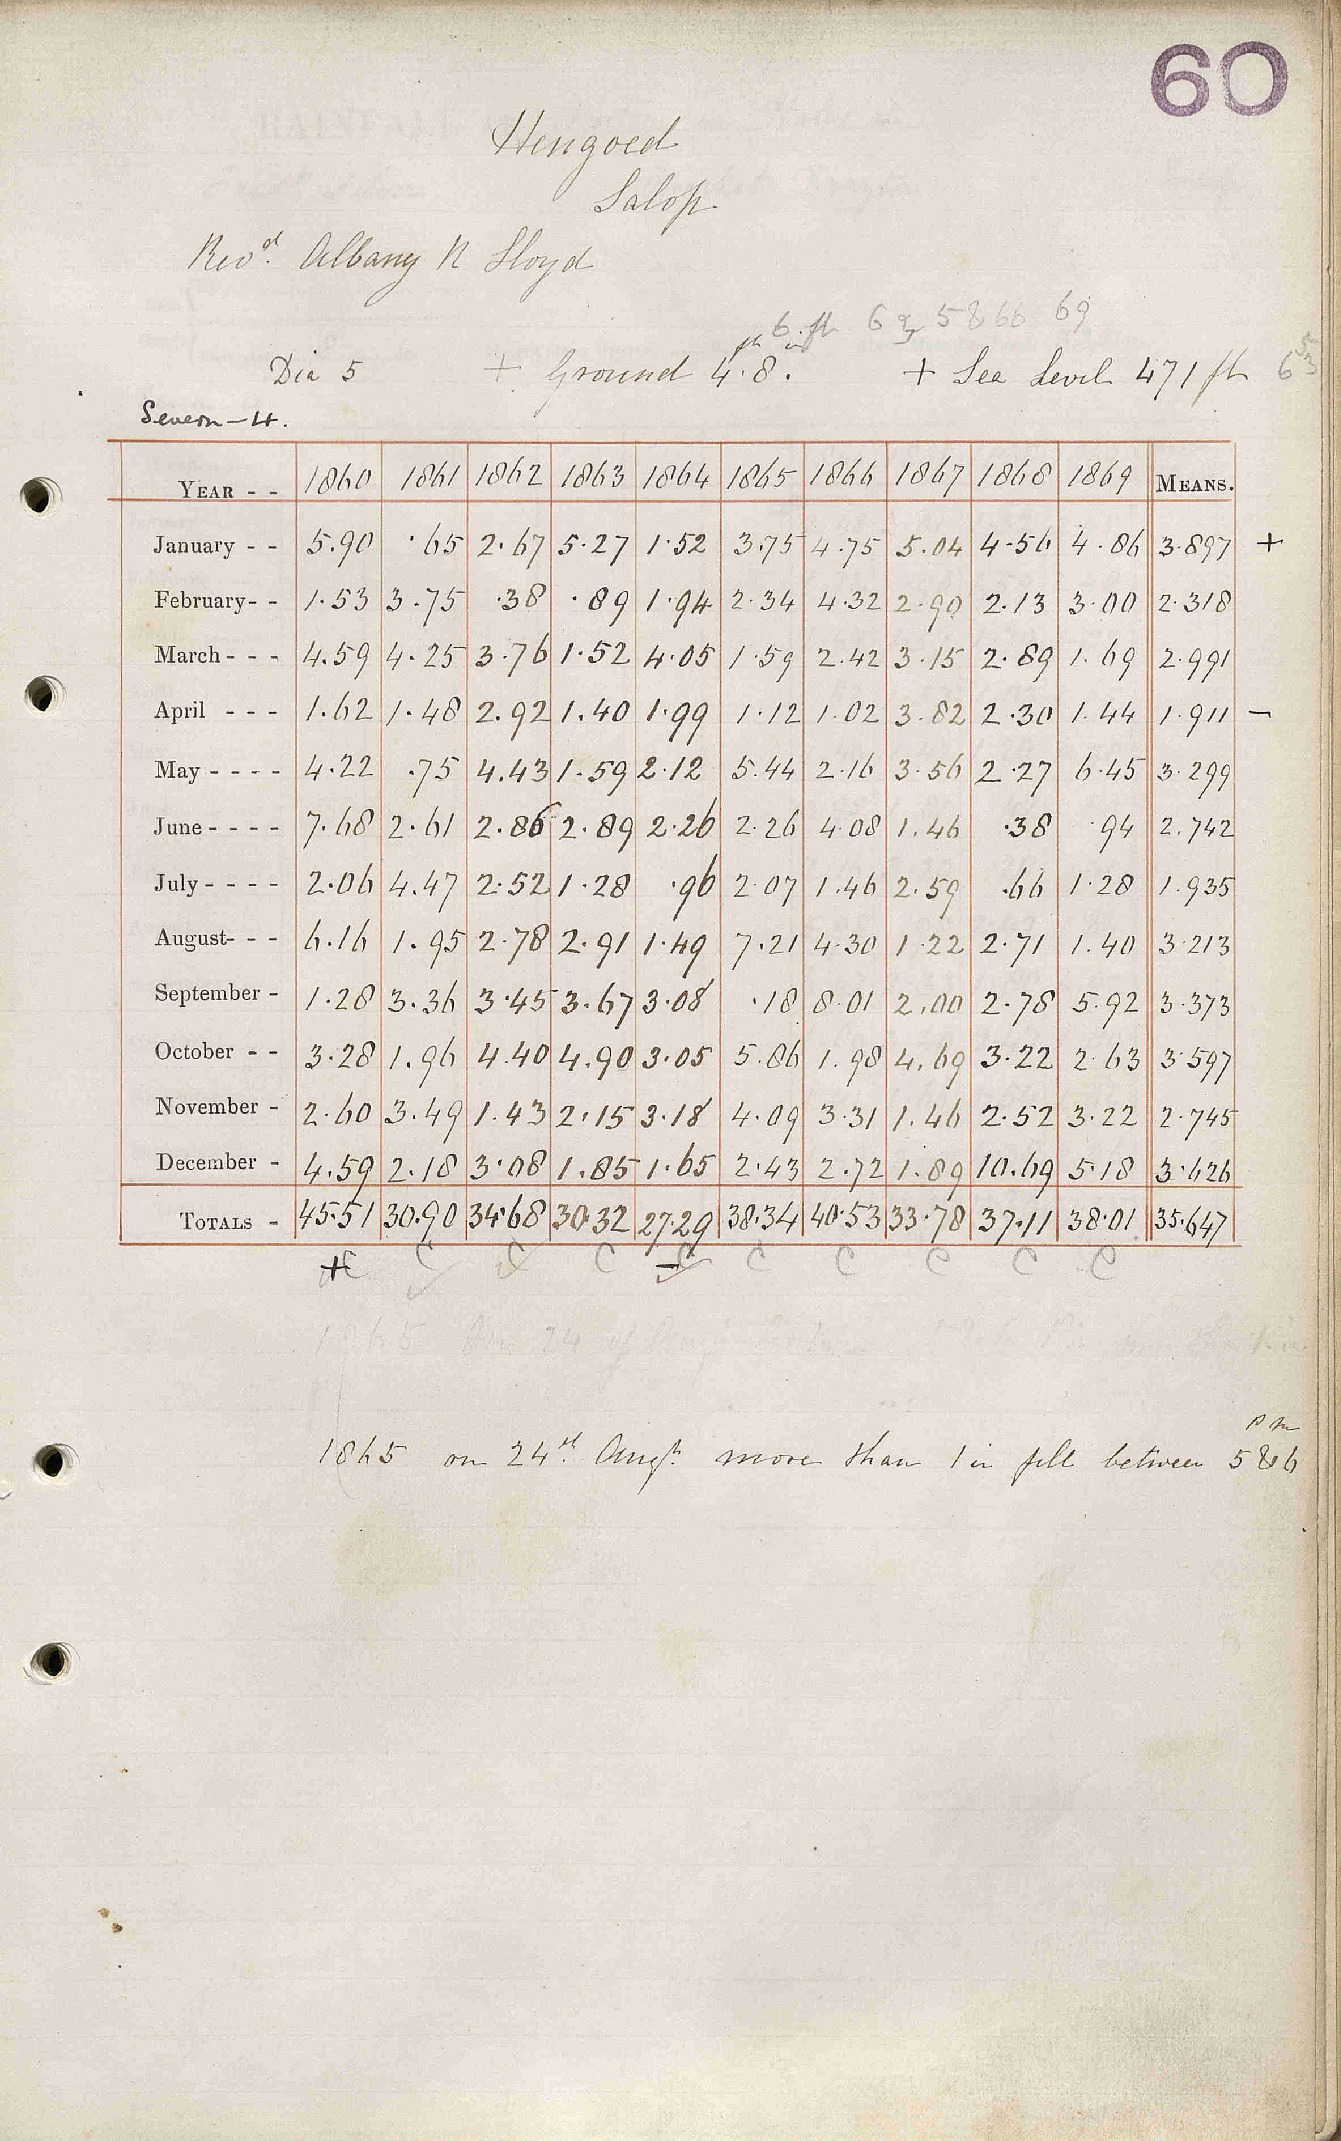 60
Hengoed
Salop
Revd. Albany R Lloyd
6 ft 6 5 & 66 69
Dia 5 + Ground 4 ft 8 in. + Sea Level 471 ft
Severn - 4.
YEAR - - 1860 1861 1862 1863 1864 1865 1866 1867 1868 1869 MEANS.
January - - 5.90 .65 2.67 5.27 1.52 3.75 4.75 5.04 4.56 4.86 3.897 +
February - - 1.53 3.75 .38 .89 1.94 2.34 4.32 2.90 2.13 3.00 2.318
March - - - 4.59 4.25 3.76 1.52 4.05 1.59 2.42 3.15 2.89 1.69 2.991
April - - - 1.62 1.48 2.92 1.40 1.99 1.12 1.02 3.82 2.30 1.44 1.911 -
May - - - - 4.22 .75 4.43 1.59 2.12 5.44 2.16 3.56 2.27 6.45 3.299
June - - - - 7.68 2.61 2.86 2.89 2.26 2.26 4.08 1.46 .38 .94 2.742
July - - - - 2.06 4.47 2.52 1.28 .96 2.07 1.46 2.59 .66 1.28 1.935
August - - - 6.16 1.95 2.78 2.91 1.49 7.21 4.30 1.22 2.71 1.40 3.213
September - 1.28 3.36 3.45 3.67 3.08 .18 8.01 2.00 2.78 5.92 3.373
October - - 3.28 1.96 4.40 4.90 3.05 5.86 1.98 4.69 3.22 2.63 3.597
November - 2.60 3.49 1.43 2.15 3.18 4.09 3.31 1.46 2.52 3.22 2.745
December - 4.59 2.18 3.08 1.85 1.65 2.43 2.72 1.89 10.69 5.18 3.626
TOTALS - 45.51 30.90 34.68 30.32 27.29 38.34 40.53 33.78 37.11 38.01 35.647
+ C C C C - C C C C C C
1865 on 24th. Augt. more than 1 in fell between 5 & 6 pm